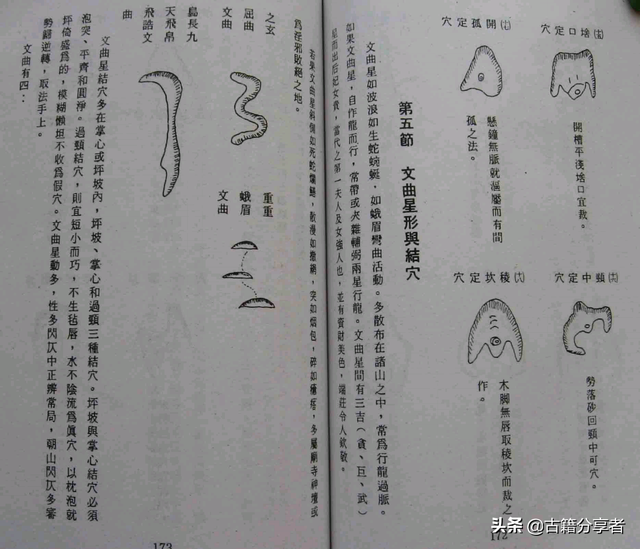 口定穴
開槽平淺口宜裁。
開孤定穴
懸鐘無脈就漏屬而有間
孤之法。
頸中定穴
勞落砂回頸中可穴。
稜坎定穴
木脚無唇取稜坎而裁之
作。
第五節 文曲星形與結穴
文曲星如波浪如生蛇蜿蜒，如蛾眉彎曲活動。多散布在諸山之中，常爲行龍過脈。
如果文曲星，自作龍而行，常帶或夾雜輔弼兩星行龍。文曲星間有三吉（貪、巨、武）
星而出后妃女貴，當代之第一夫人及女強人也，並有資財美色，端莊令人欽敬。
172
若果文曲星斜側如死蛇爛鱔，散漫如撒網，突如烟包，碎如檯塔，多屬廟寺神壇或
爲淫邪敗絕之地。
之玄
屈曲
文曲
重重
蛾眉
文曲
烏長九
天飛帛
飛誥文
曲
文曲星結穴多在掌心或坪坡內，坪坡、掌心和過頸三種結穴。坪坡與掌心結穴必須
泡突、平齊和圓淨。過頸結穴，則宜短小而巧，不生毡唇，水不陰流爲眞穴，以枕泡就
坪倚盛爲的，模糊懶坦不收爲假穴。文曲星動多，性多閃仄中正辨常局，朝山閃仄多審
勢翻逆轉，取法手上。
文曲有四：
173
头条 @古籍分享者